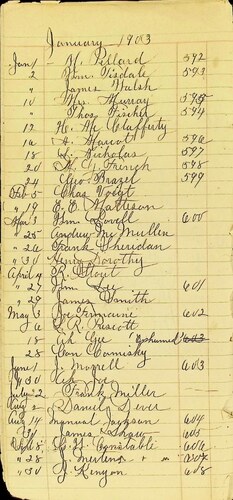 January 1903
Jan 1 M. Pellard 592
2 Wm. Tisdale 593
" James Walsh
10 Mrs. Murray 595
" Thos. Fischer 594
12 H. Mc Clafferty
16 A. Marcot 596
18 L. Nicholas 597
20 A. C. French 598
24 Geo Brazel 599
Feb 5 Chas Voigt
" 19 E. E. Matteson
Mar 3 Wm Lovell 600
" 25 Andrew McMullen
" 26 Frank Sheridan
" 30 Henry Dorothy
April 4 R. Stout
" 27 Wm Lee 601
" 29 James Smith
May 3 Joe Ermaine 602
6 E. R. Riscott
18 Ah Gee Exhumed 603
28 Con Comisky
June 1 J. Morrell 603
" 30 Ah Joe
July 2 Frank Miller
Aug 2 Daniel Dever
Aug 14 Manual Jackson 604
" 27 James Shaw 605
Oct 8 S. H. Constable 606
" 28 J. Mertens 607
" 30 J. Kenyon 608